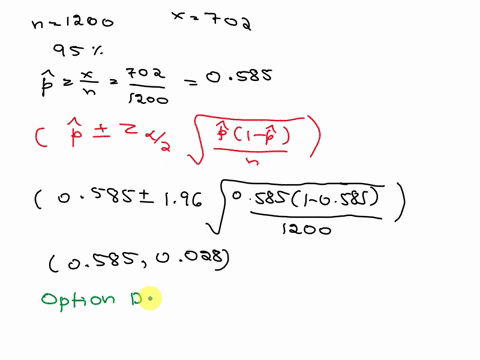 n=1200 x=702
95%
p̂ = x/n = 702/1200 = 0.585
( p̂ ± Z α/2 √(p̂(1-p̂)/n) )
( 0.585 ± 1.96 √(0.585(1-0.585)/1200) )
(0.585, 0.028)
Option D.